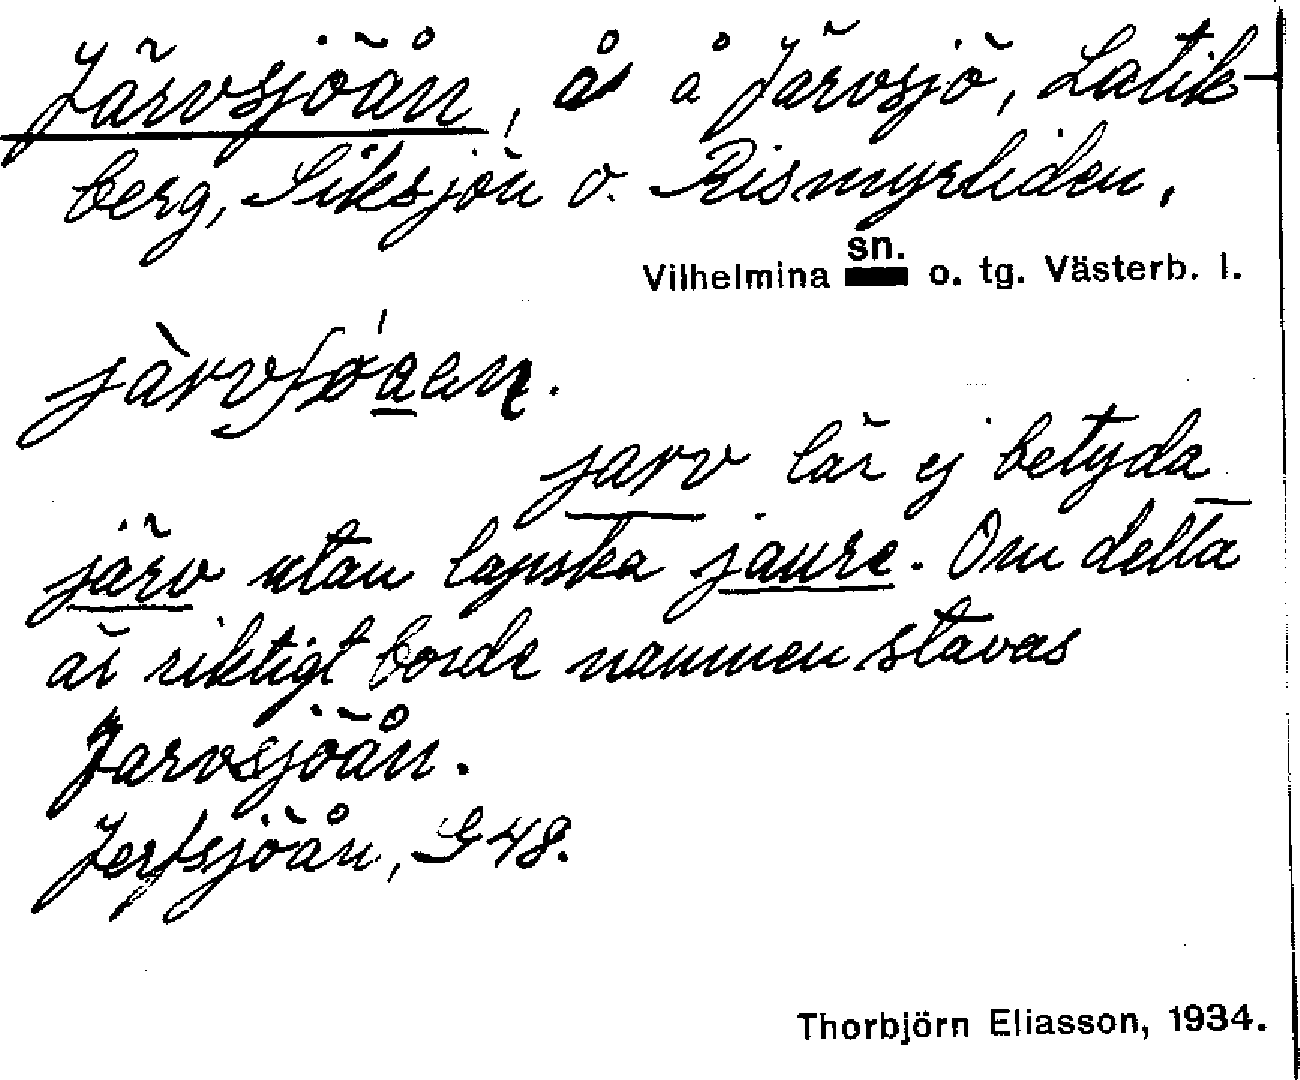 Järvsjöån, å å Järvsjö, Latik-
berg, Siksjön o. Rismyrliden,
Vilhelmina sn. o. tg. Västerb. l.
jarv lär ej betyda
järv utan lapska jaure. Om detta
är riktigt borde namnen stavas
Jarvsjöån.
Jerfsjöån, G48.
Thorbjörn Eliasson, 1934.